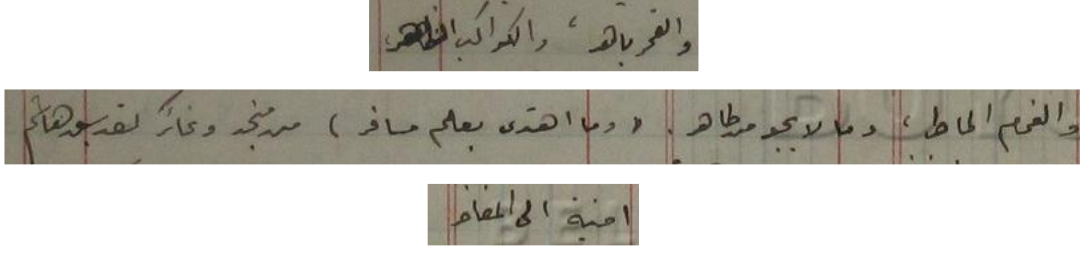 والقمر باهر ، والكواكب الظاهر،
والغمام الماطر ، وما لا بجو من طاهر . (وما اهتدى بعلم مسافر) من منجد وغائر لقد سبق هاشم
امنية الى المفاخر